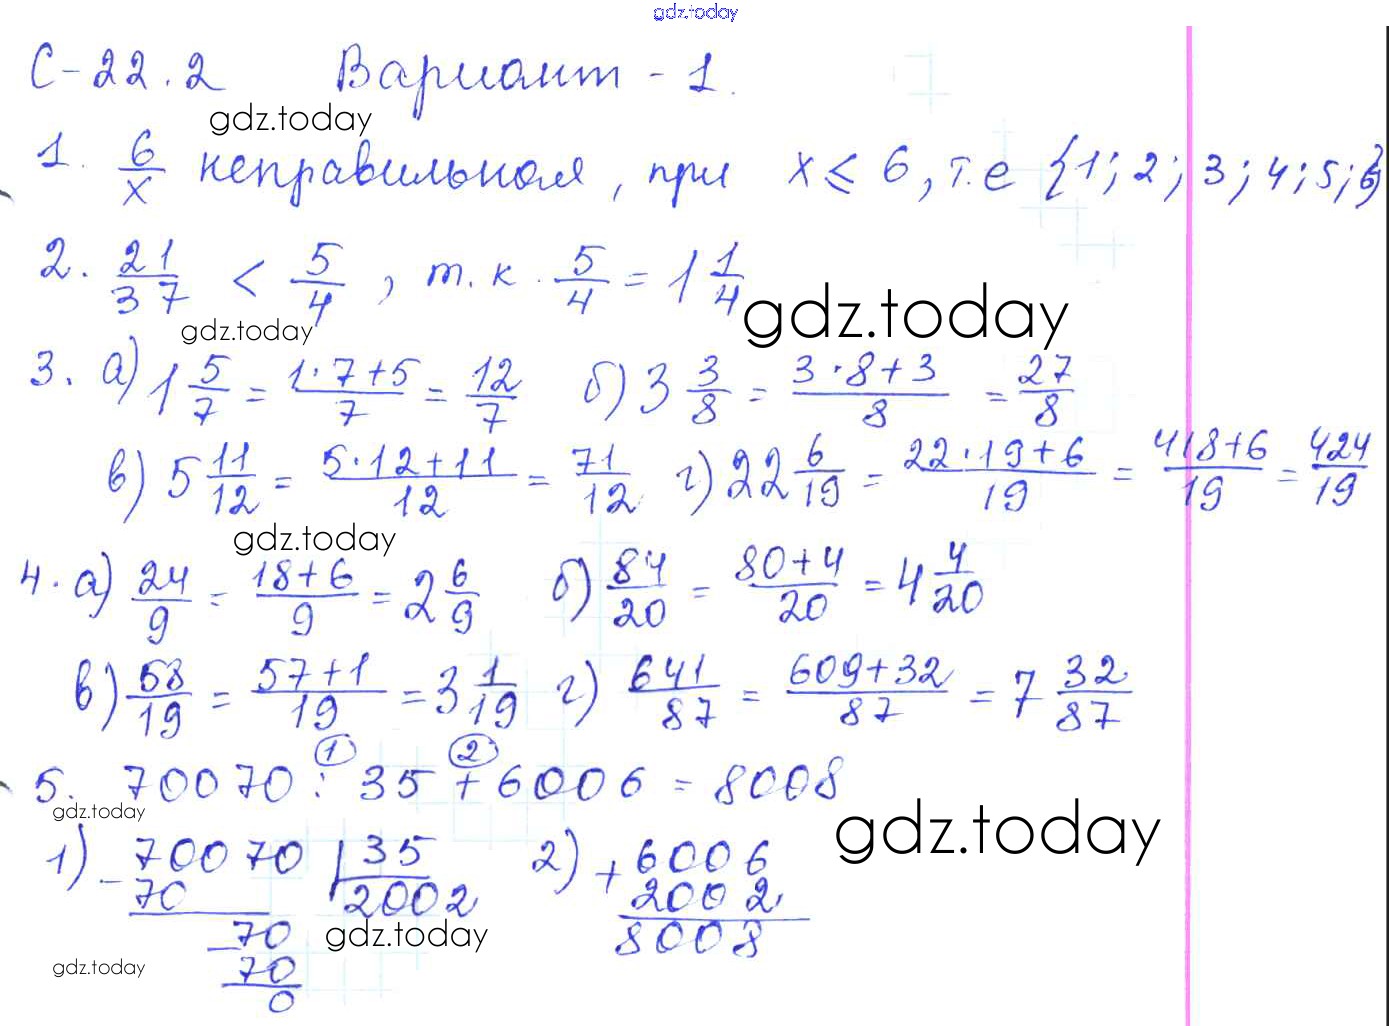 gdz.today
С-22.2 Вариант - 1.
gdz.today
1. 6/x неправильная, при x ⩽ 6, т.е {1; 2; 3; 4; 5; 6}
2. 21/37 < 5/4, т.к. 5/4 = 1 1/4
gdz.today
gdz.today
3. а) 1 5/7 = (1·7+5)/7 = 12/7 б) 3 3/8 = (3·8+3)/8 = 27/8
в) 5 11/12 = (5·12+11)/12 = 71/12 г) 22 6/19 = (22·19+6)/19 = (418+6)/19 = 424/19
gdz.today
4. а) 24/9 = (18+6)/9 = 2 6/9 б) 84/20 = (80+4)/20 = 4 4/20
в) 58/19 = (57+1)/19 = 3 1/19 г) 641/87 = (609+32)/87 = 7 32/87
① ②
5. 70070 : 35 + 6006 = 8008
gdz.today
gdz.today
1) - 70070 | 35 2) + 6006
70 2002 2002
- 70 8008
gdz.today
70
gdz.today
0